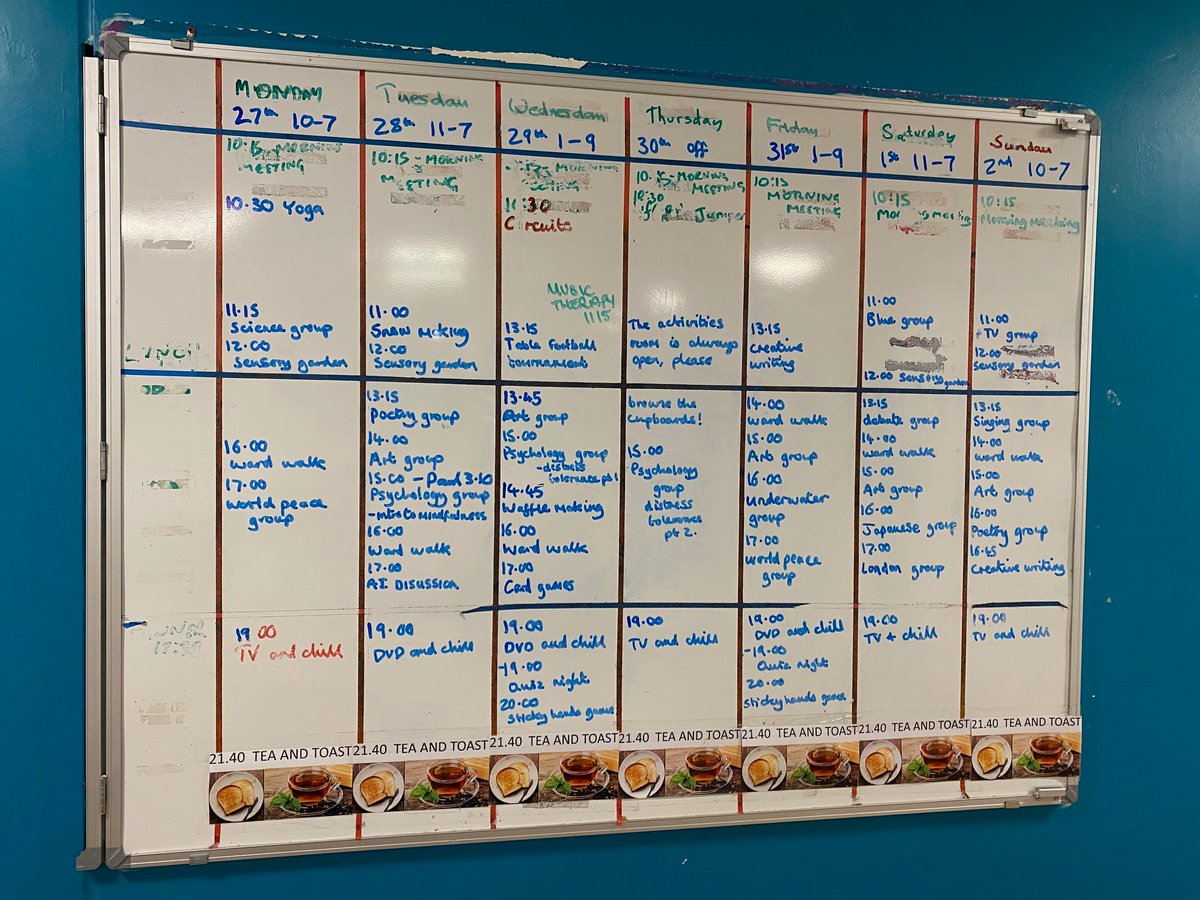 MONDAY
27th 10-7
10:15 - MORNING
MEETING
10.30 Yoga
11.15
Science group
12.00
Sensory garden
16.00
ward walk
17.00
world peace
group
19 00
TV and chill
21.40 TEA AND TOAST
Tuesday
28th 11-7
10:15 - MORNING
MEETING
11.00
Snow Making
12.00
Sensory garden
13.15
Poetry group
14.00
Art group
15.00 -
Psychology group
- intro to mindfulness
16.00
Ward walk
17.00
A.I DISUSSION
19.00
DVD and chill
21.40 TEA AND TOAST
Wednesday
29th 1-9
MORNING
30
Circuits
MUSIC
THERAPY
1115
13.15
Table football
tournament
13.45
Art group
15.00
Psychology group
- distress
tolerance pt 1
14.45
Waffle Making
16.00
Ward walk
17.00
Card games
19.00
DVD and chill
-19.00
Quiz night
20.00
Sticky hands game
21.40 TEA AND TOAST
Thursday
30th off
10.15 - MORNING
MEETING
10:30
Juniper
The activities
room is always
open, please
browse the
cupboards!
15.00
Psychology
group
distress
tolerance
pt 2.
19.00
TV and chill
21.40 TEA AND TOAST
Friday
31st 1-9
10:15
MORNING
MEETING
13.15
Creative
writing
14.00
ward walk
15.00
Art group
16.00
Underwater
group
17.00
world peace
group
19.00
DVD and chill
-19.00
Quiz night
20.00
Sticky hands game
21.40 TEA AND TOAST
Saturday
1st 11-7
10:15
Morning meeting
11.00
Blue group
12.00 Sensory garden
13.15
debate group
14.00
ward walk
15.00
Art group
16.00
Japanese group
17.00
London group
19.00
TV + chill
21.40 TEA AND TOAST
Sunday
2nd 10-7
10:15
Morning meeting
11.00
TV group
12.00
Sensory garden
13.15
Singing group
14.00
ward walk
15.00
Art group
16.00
Poetry group
16.45
Creative writing
19.00
TV and chill
21.40 TEA AND TOAST
LUNCH